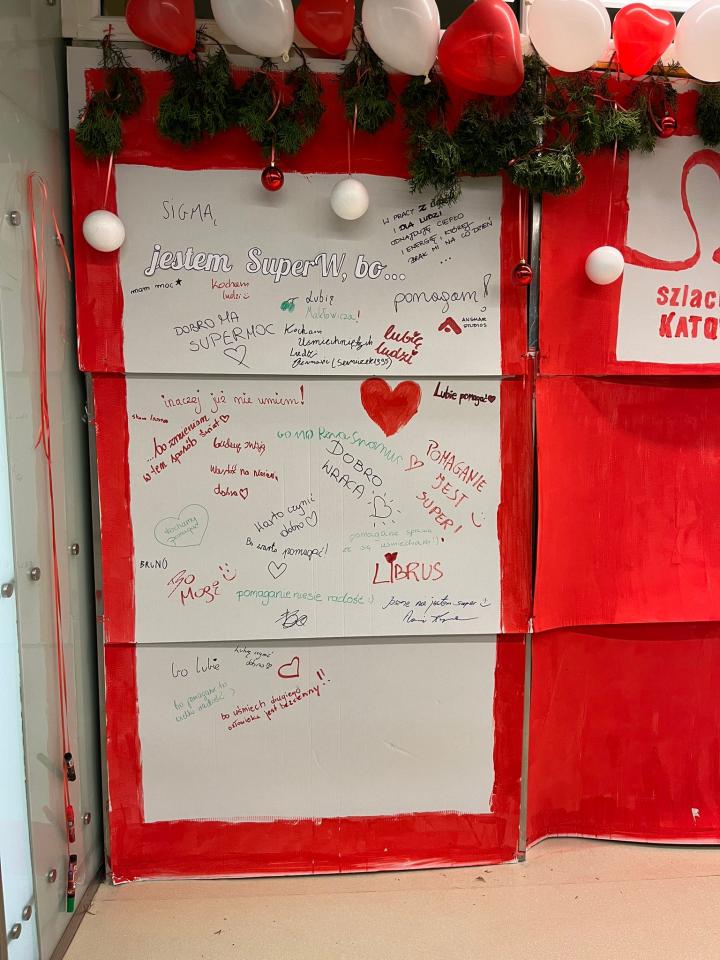 SIGMA
W PRACY Z
I DLA LUDZI
ODNAJDUJĘ CIEPŁO
I ENERGIĘ, KTÓREJ
BRAK MI NA CO DZIEŃ
...
jestem SuperW, bo...
mam moc
Kocham
ludzi
Lubię
Makłowicza!
pomagam!
DOBRO MA
SUPERMOC
Kocham
Uśmiechniętych
Ludzi
lubię
ludzi
ANSHAR
STUDIOS
szlac
KATO
inaczej już nie umiem!
Lubię pomagać
...bo zmieniam
w ten sposób świat
DOBRO
WRACA
POMAGANIE
JEST
SUPER!
dobro
Warto czynić
dobro
Kochamy
pomagać
Bo warto pomagać!
pomaganie sprawia
że są uśmiechami
BRUNO
BO
MOGĘ
LIBRUS
pomaganie niesie radość :)
jestem super
bo lubię
Lubię czynić
dobro
bo pomaganie to
bo uśmiech drugiego
człowieka jest bezcenny!!